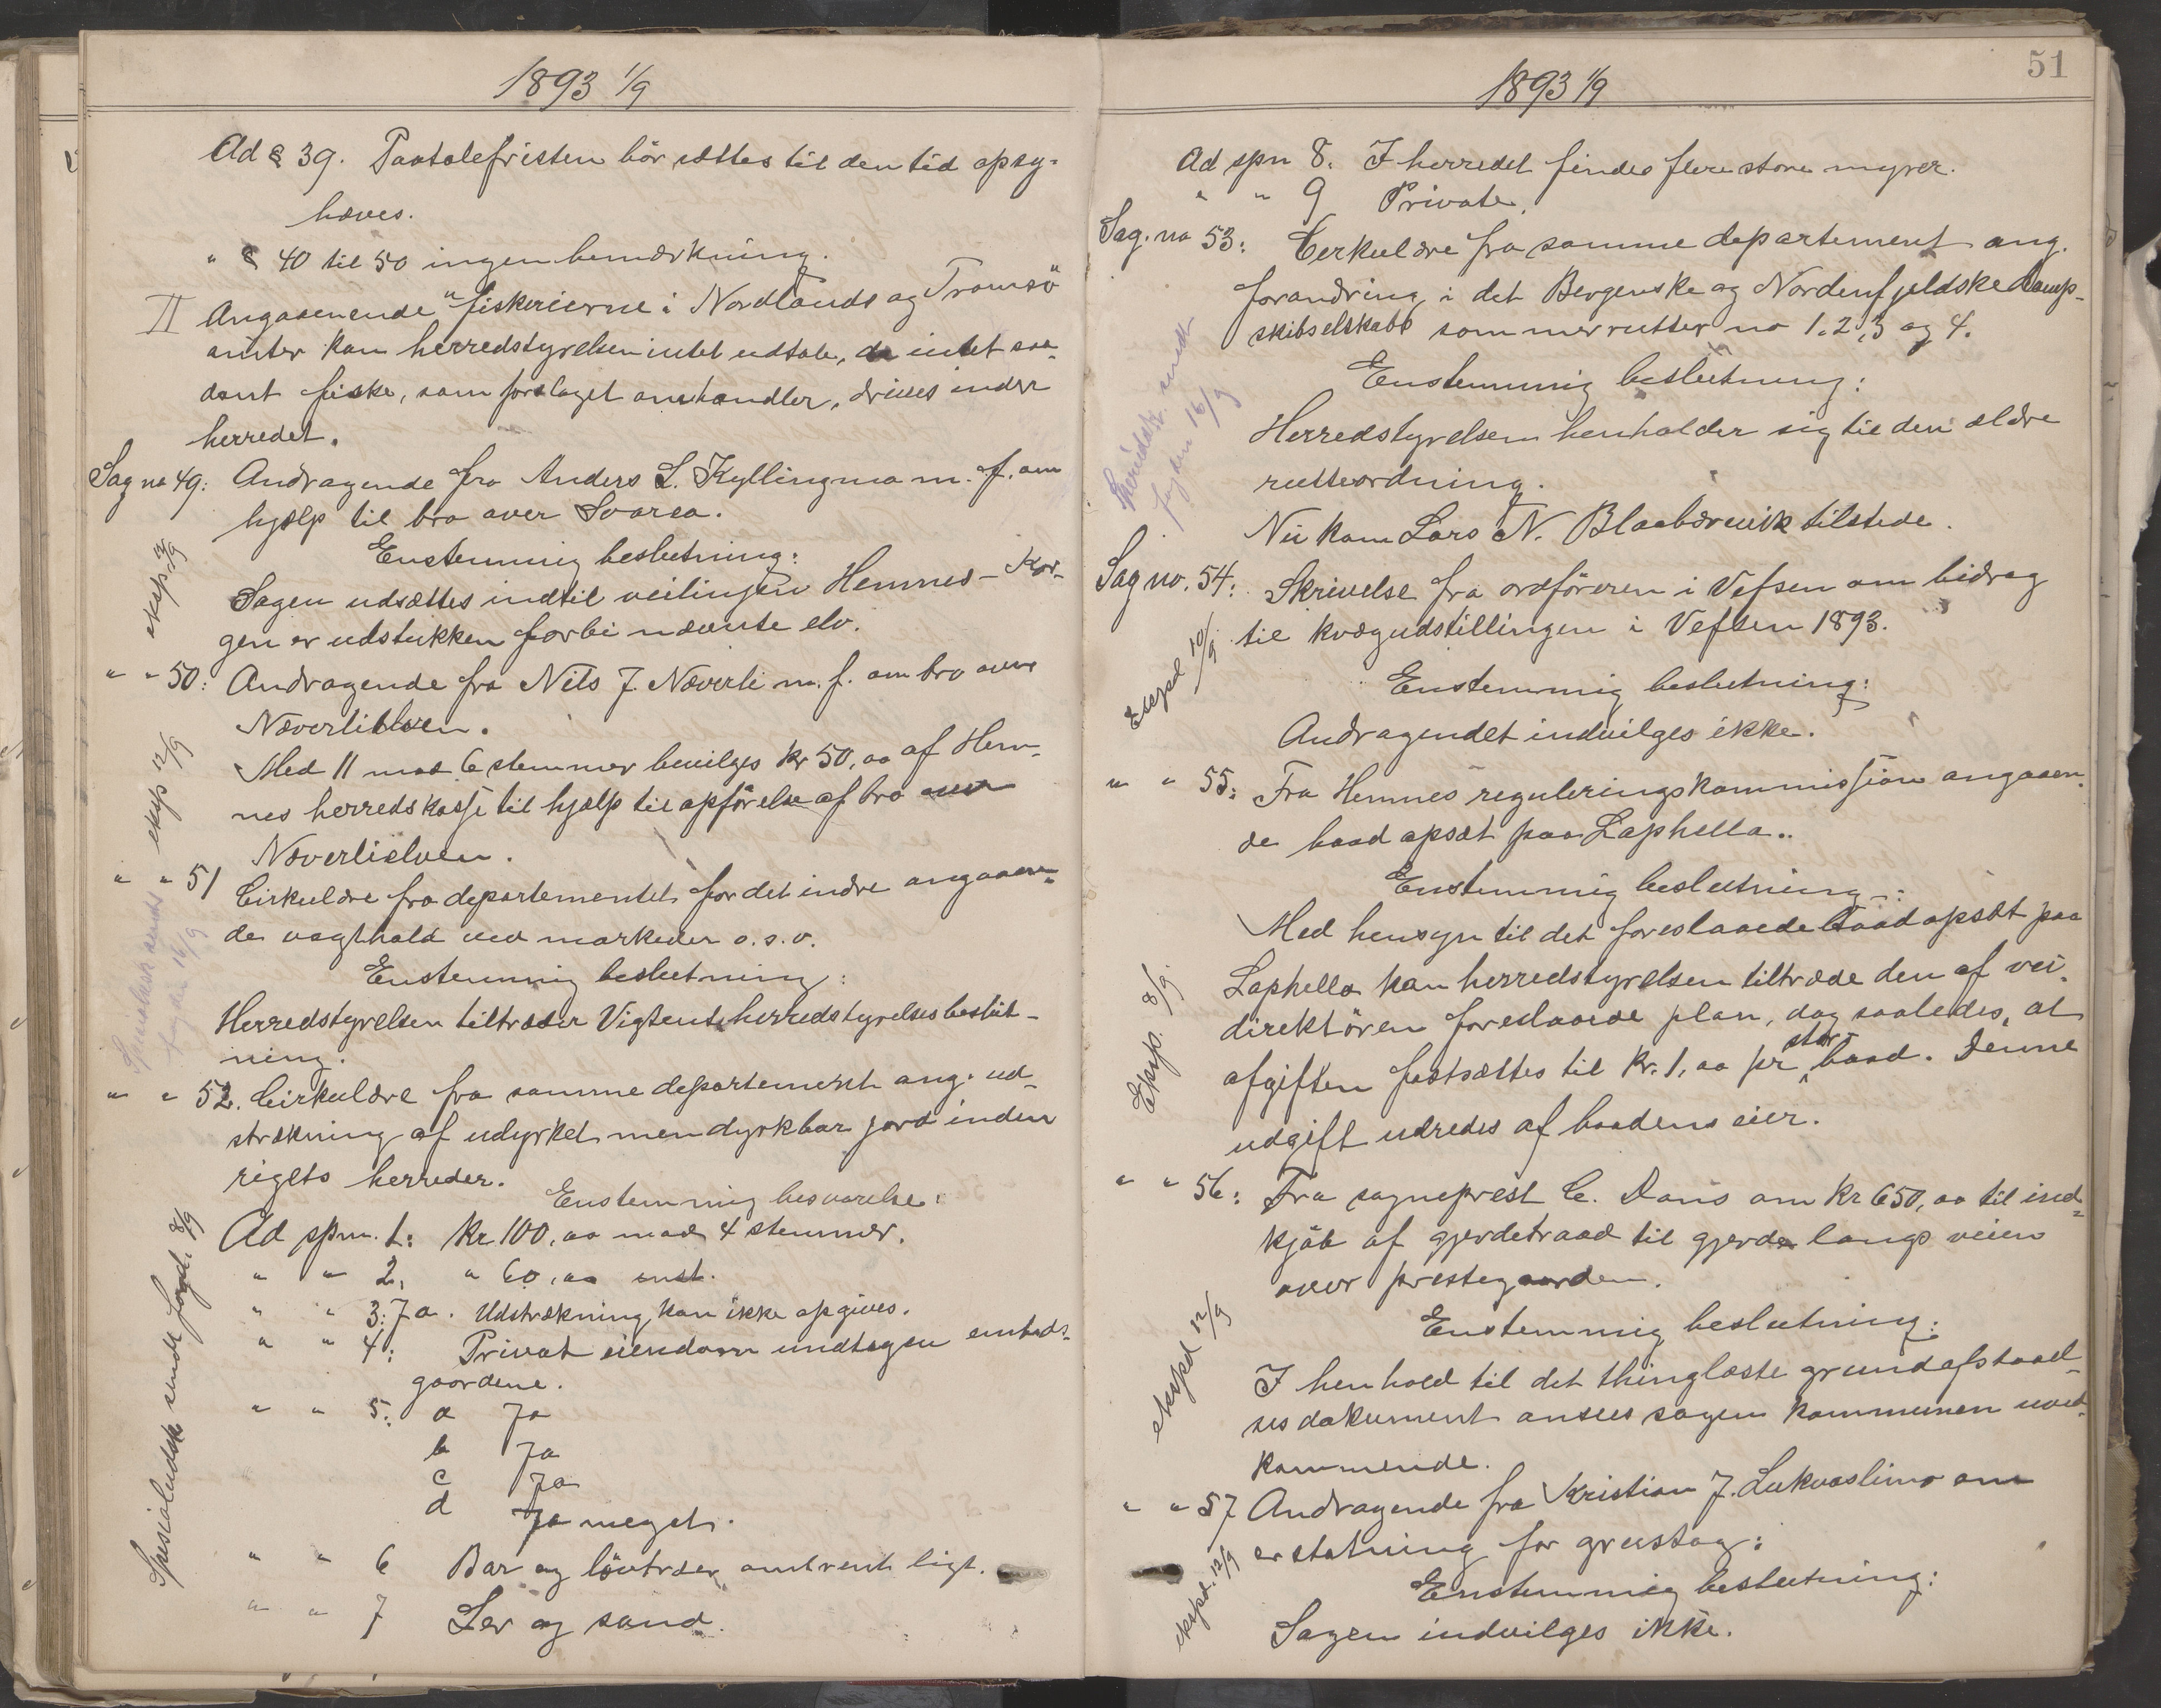 1893 1/9
Ad § 39. Paatalefristen bör sættes til den tid opsy-
hæves.
" § 40 til 50 ingen bemærkning.
II Angaaenende "fiskerierne i Nordlands og Tromsö
amter kan herredstyrelsen intet udtale, da intet saa-
dant fiske, som forslaget omhandler, drives inden
herredet.
Sag no 49: Andragende fra Anders L. Kyllingmo m. f. om
hjælp til bro over Svaraa.
Enstemmig beslutning:
Sagen udsættes indtil veilinjen Hemnes - Kor-
gen er udstukken forbi nævnte elv.
eksp. 12/9
" " 50: Andragende fra Nils J. Næverli m. f. om bro over
Næverlielven.
Med 11 mod 6 stemmer bevilges kr 50,00 af Hem-
nes herredskasse til hjælp til opförelse af bro over
Næverlielven.
eksp 12/9
" " 51 Cirkulære fra departementet for det indre angaaen-
de vagthold ved markeder o.s.v.
Enstemmig beslutning:
Herredstyrelsen tiltræder Vigtens herredstyrelses beslut-
ning.
Herredsk. sendt
fogden 16/9
" " 52. Cirkulære fra samme departement ang. ud-
strækning af udyrket men dyrkbar jord inden
rigets herreder.
Enstemmig besvarelse:
Ad spm. 1: kr 100,00 mod 4 stemmer.
" " 2, " 60,00 enst.
" " 3: Ja. Udstrækning kan ikke opgives.
" " 4: Privat eiendom undtagen embeds-
gaardene.
" " 5: a Ja
b Ja
c Ja
d Ja meget.
" " 6 Bar og lövtræer omtrent ligt.
" " 7 Ler og sand.
Specialudsk. sendt fogd. 8/9
1893 1/9
51
Ad spm 8. I herredet findes flere store myrer.
" " 9 Private.
Sag. no 53: Cerkulære fra samme departement ang.
forandring i det Bergenske og Nordenfjeldske Damp-
skibselskabs sommerrutter no 1, 2, 3 og 4.
Enstemmig beslutning:
Herredstyrelsen henholder sig til den ældre
rutteordning.
Herredsk. sendt
fogden 16/9
Nu kom Lars N. Blaabærvik tilstede.
Sag no. 54: Skrivelse fra ordföreren i Vefsen om bidrag
til kvægudstillingen i Vefsen 1893.
Enstemmig beslutning:
Andragendet indvilges ikke.
Exspd 10/9
" " 55: Fra Hemnes reguleringskommission angaaen-
de baadopsæt paa Laphella..
Enstemmig beslutning:
Med hensyn til det foreslaaede baadopsæt paa
Laphella kan herredstyrelsen tiltræde den af vei-
direktören foreslaaede plan, dog saaledes, at
afgiften fastsættes til kr. 1,00 pr stor baad. Denne
udgift udredes af baadens eier.
Eksp. 8/9.
" " 56: Fra sogneprest C. Dans om kr 650,00 til ind-
kjöb af gjerdetraad til gjerde langs veien
over prestegaarden.
Enstemmig beslutning:
I henhold til det thinglæste grundafstaael-
ses dokument ansees sagen kommunen uved-
kommende.
ekspd 12/9
" " 57 Andragende fra Kristian J. Lukvaslimo om
erstatning for grustag:
Enstemmig beslutning:
Sagen indvilges ikke.
ekspd. 12/9